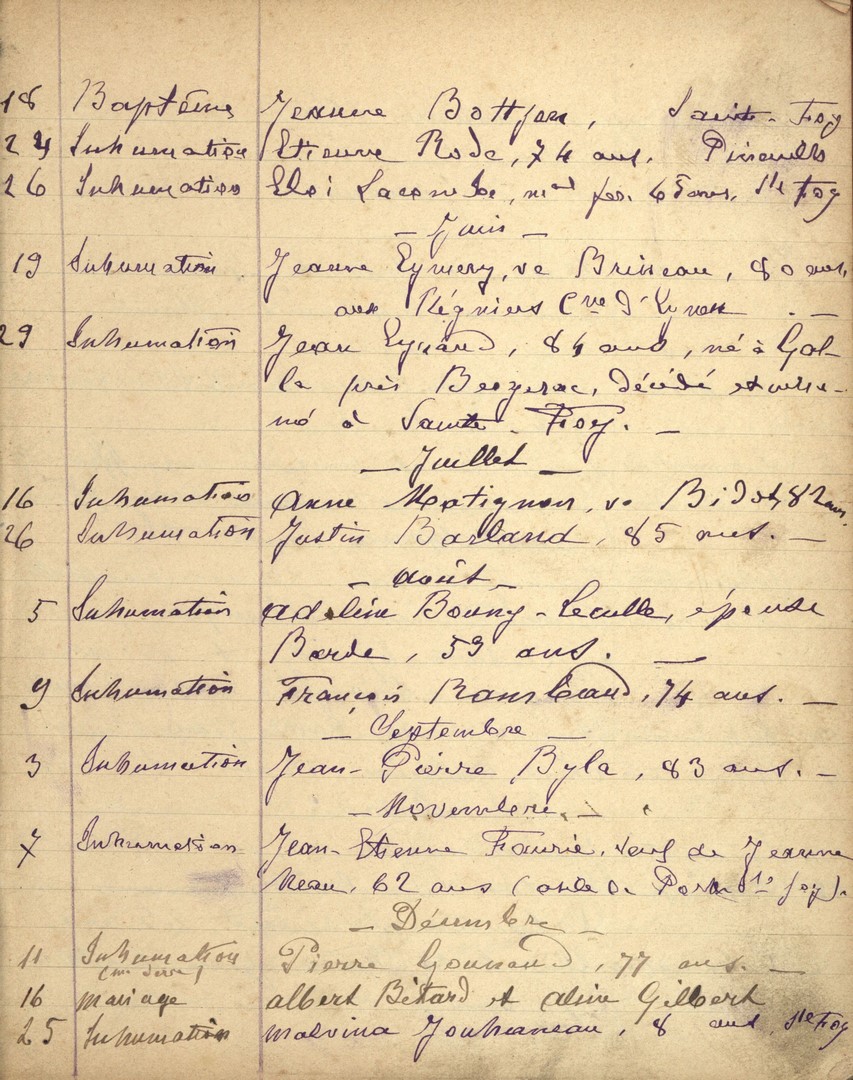 18 Baptême Jeanne Bottfon, Sainte-Foy
24 Inhumation Etienne Rode, 74 ans. Pineuilh
26 Inhumation Eloi Lacombe, md fer. 65 ans, Ste Foy
— Juin —
19 Inhumation Jeanne Eymery, ve Brineau, 80 ans,
aux Régniers Cne d'Eynesse . —
29 Inhumation Jean Eynard, 84 ans, né à Gal-
la près Bergerac, décédé et inhu-
mé à Sainte-Foy. —
— Juillet —
16 Inhumation Anne Matignon, ve Bidot, 82 ans.
26 Inhumation Justin Barland, 85 ans. —
— Août —
5 Inhumation Adeline Bouny-Leculle, épouse
Barde, 59 ans. —
9 Inhumation François Rambaud, 74 ans. —
— Septembre —
3 Inhumation Jean-Pierre Byla, 83 ans. —
— Novembre. —
7 Inhumation Jean-Etienne Faurie, veuf de Jeanne
Neau, 62 ans (asile de Ste foy). —
— Décembre —
11 Inhumation Pierre Gounaud, 77 ans. —
16 mariage Albert Bétard et Aline Gilbert
25 Inhumation Malvina Jouhaneau, 8 ans, Ste Foy